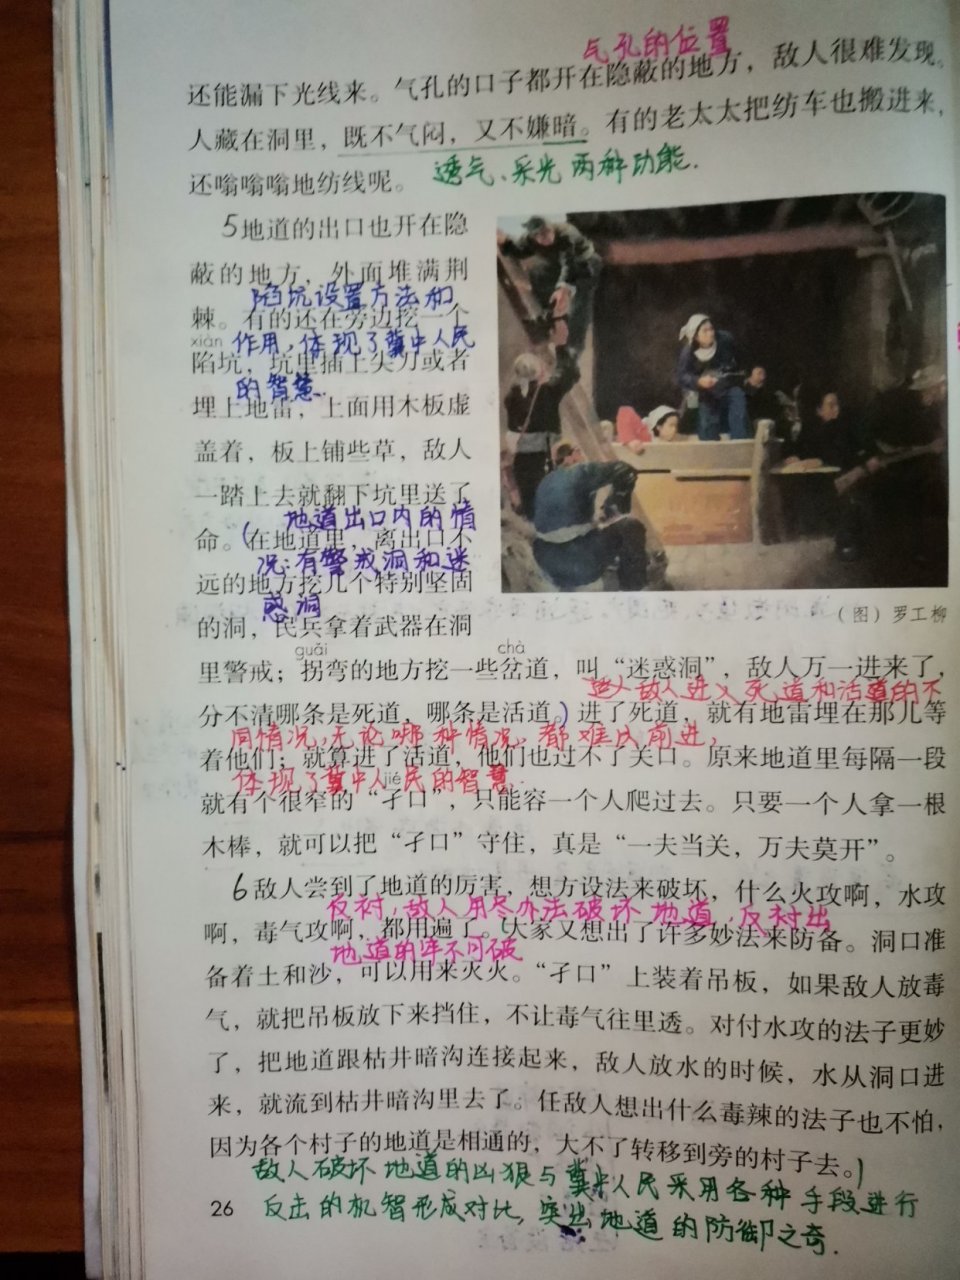 气孔的位置
还能漏下光线来。气孔的口子都开在隐蔽的地方，敌人很难发现。
人藏在洞里，既不气闷，又不嫌暗。有的老太太把纺车也搬进来，
还嗡嗡嗡地纺线呢。
透气、采光两种功能.
5地道的出口也开在隐
蔽的地方，外面堆满荆
陷坑设置方法和
棘。有的还在旁边挖一个
xiàn
作用，体现了冀中人民
陷坑，坑里插上尖刀或者
的智慧.
埋上地雷，上面用木板虚
盖着，板上铺些草，敌人
一踏上去就翻下坑里送了
地道出口内的情
命。(在地道里，离出口不
况:有警戒洞和迷
远的地方挖几个特别坚固
惑洞
的洞，民兵拿着武器在洞
(图) 罗工柳
guǎi chà
里警戒；拐弯的地方挖一些岔道，叫“迷惑洞”，敌人万一进来了，
敌人进入死道和活道的不
分不清哪条是死道，哪条是活道。)进了死道，就有地雷埋在那儿等
同情况，无论哪种情况，都难以前进，
着他们；就算进了活道，他们也过不了关口。原来地道里每隔一段
体现了冀中人民的智慧.
jié
就有个很窄的“孑口”，只能容一个人爬过去。只要一个人拿一根
木棒，就可以把“孑口”守住，真是“一夫当关，万夫莫开”。
6敌人尝到了地道的厉害，想方设法来破坏，什么火攻啊，水攻
反衬，敌人用尽办法破坏地道，反衬出
啊，毒气攻啊，都用遍了。大家又想出了许多妙法来防备。洞口准
地道的牢不可破
备着土和沙，可以用来灭火。“孑口”上装着吊板，如果敌人放毒
气，就把吊板放下来挡住，不让毒气往里透。对付水攻的法子更妙
了，把地道跟枯井暗沟连接起来，敌人放水的时候，水从洞口进
来，就流到枯井暗沟里去了。任敌人想出什么毒辣的法子也不怕，
因为各个村子的地道是相通的，大不了转移到旁的村子去。)
敌人破坏地道的凶狠与冀中人民采用各种手段进行
反击的机智形成对比，突出地道的防御之奇.
26